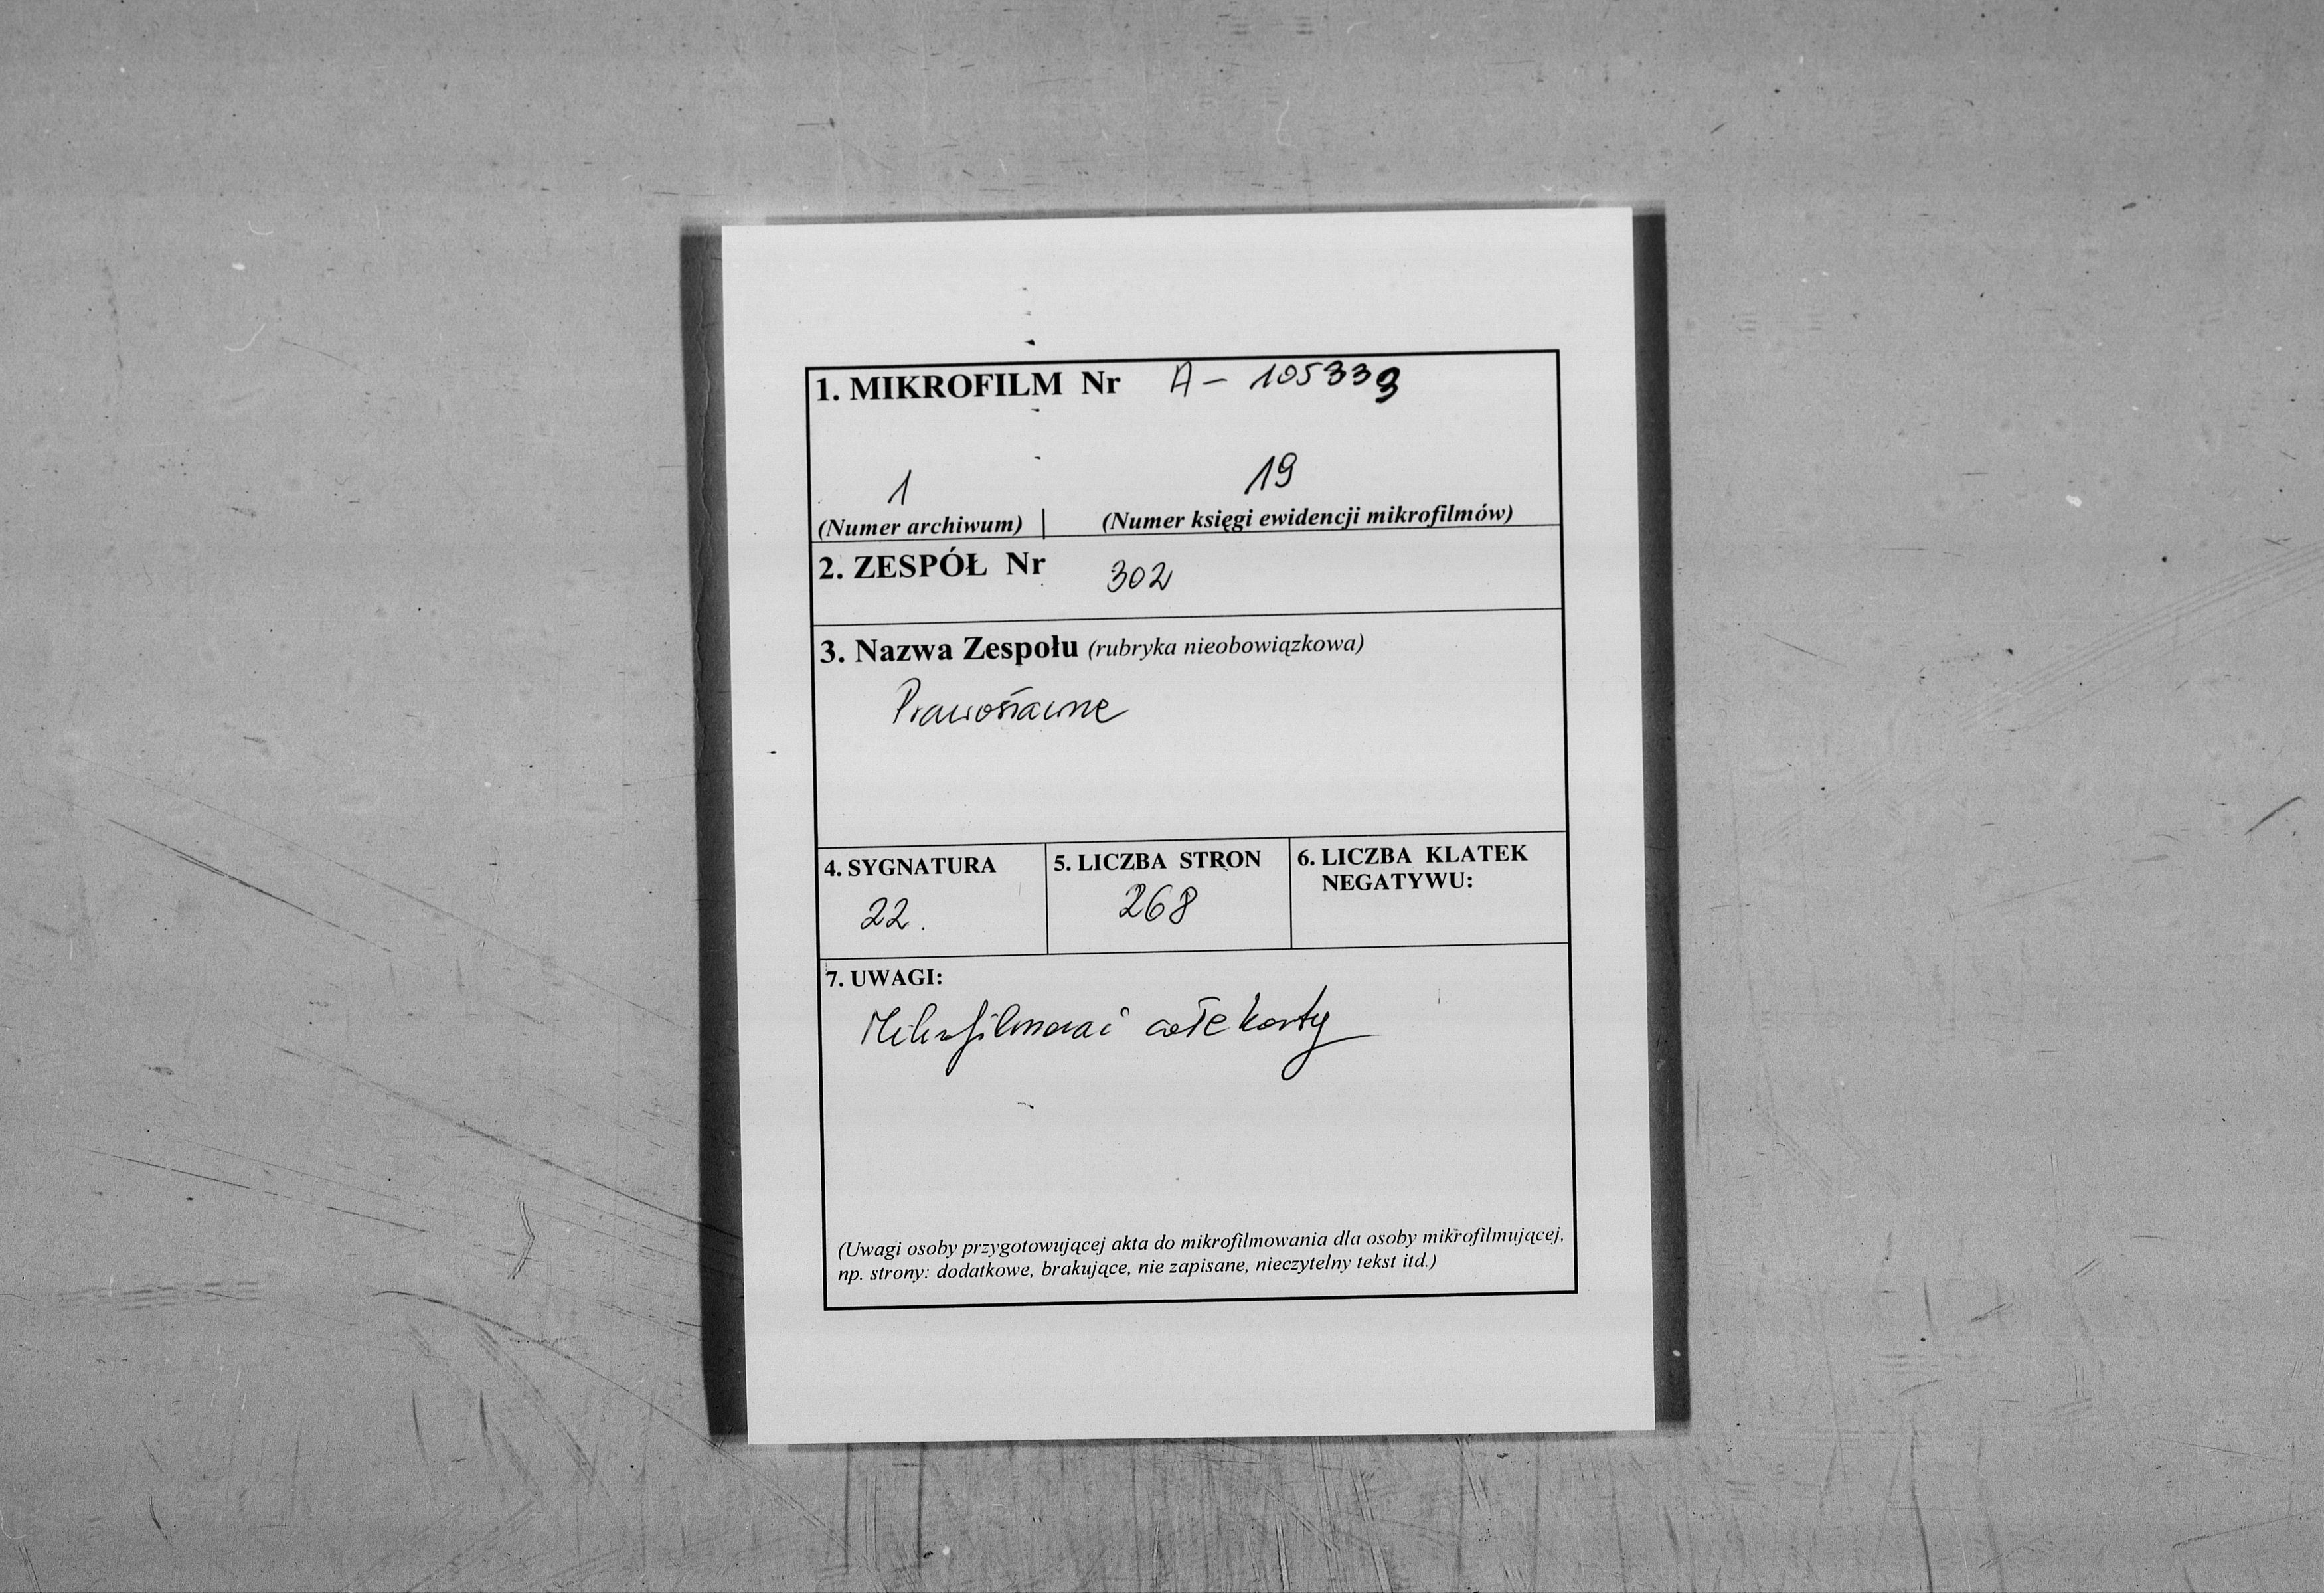 1. MIKROFILM Nr A - 105333
1 19
(Numer archiwum) | (Numer księgi ewidencji mikrofilmów)
2. ZESPÓŁ Nr 302
3. Nazwa Zespołu (rubryka nieobowiązkowa)
Prawosławne
4. SYGNATURA
22.
5. LICZBA STRON
268
6. LICZBA KLATEK
NEGATYWU:
7. UWAGI:
Mikrofilmować całe karty
(Uwagi osoby przygotowującej akta do mikrofilmowania dla osoby mikrofilmującej,
np. strony: dodatkowe, brakujące, nie zapisane, nieczytelny tekst itd.)